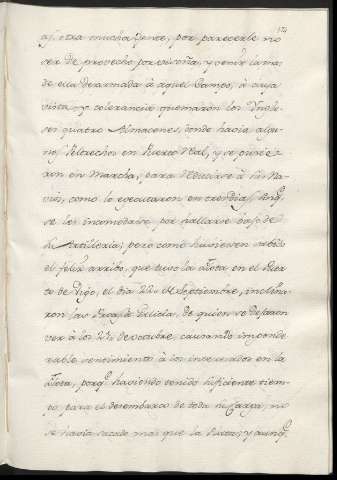 124
a otra mucha Gente, por parecerle no
ser de provecho por visoña, y venir la ma-
de ella desarmada à aquel Campo, à cuya
vista, y tolerancia quemaron los Yngle-
ses quatro Almacenes, donde havia algu-
nos Peltrechos en Puerto Real, y se pusie-
ron en Marcha, para reducirse à sus Na-
vios, como lo executaron en tres dias, sinq.
se les incomodase por hallarse bajo de
su Artilleria; pero como huviesen sabido
el felix arribo, que tuvo la Flota en el Puer-
to de Vigo, el dia 22 de Septiembre, inclina-
ron las Proas à Galicia, de quien se dejaron
ver à los 22 de octubre, causando imponde-
rable sentimiento à los interesados en la
Flota, porq. haviendo tenido suficiente tiem-
po para el desembarco de toda su Carga, no
se havia sacado mas que la Plata; y aunq.